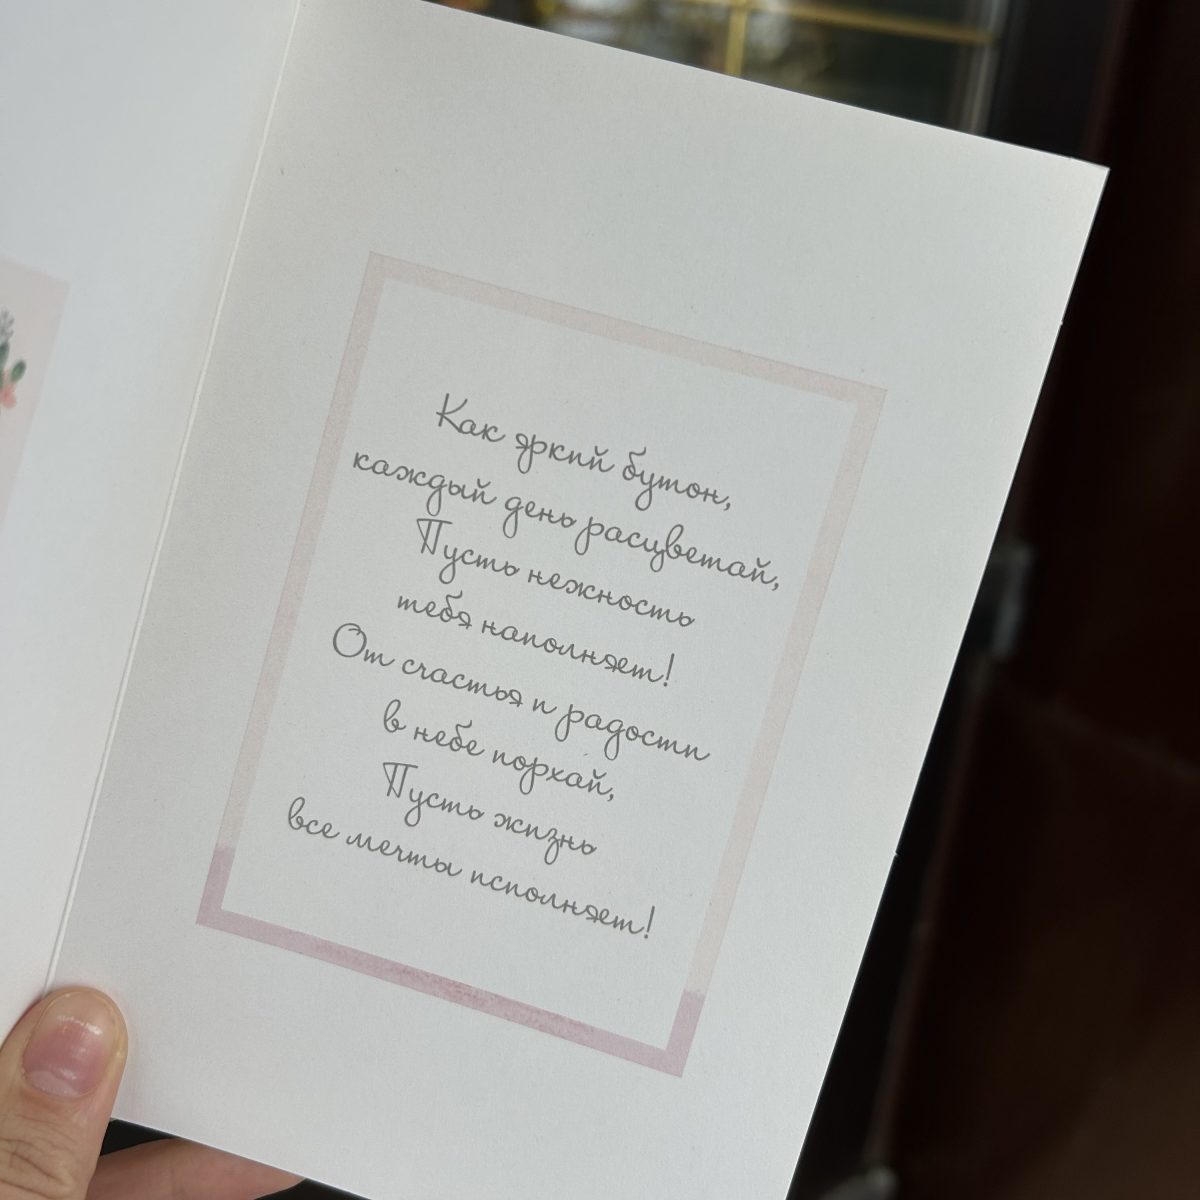 Как яркий бутон,
каждый день расцветай,
Пусть нежность
тебя наполняет!
От счастья и радости
в небе порхай,
Пусть жизнь
все мечты исполняет!